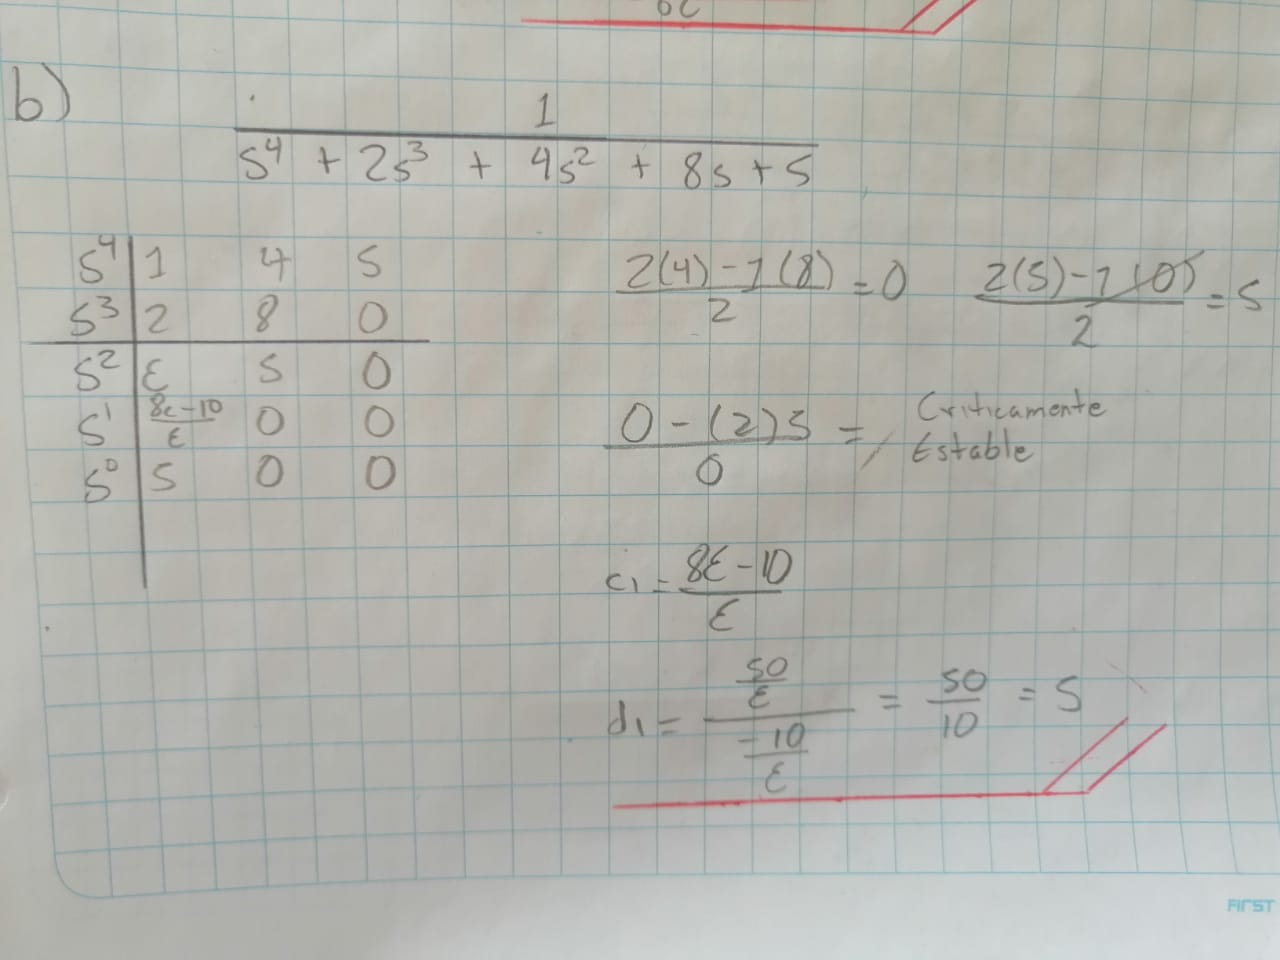 b)
1
s⁴ + 2s³ + 4s² + 8s + 5
s⁴ 1 4 5
s³ 2 8 0
s² ε 5 0
s¹ 8ε-10 0 0
ε
s⁰ 5 0 0
2(4)-1(8) = 0
2
2(5)-1(0) = 5
2
0-(2)5 = Criticamente
0 Estable
c₁ = 8ε-10
ε
50
ε
d₁ = = 50 = 5
-10 10
ε
FIRST